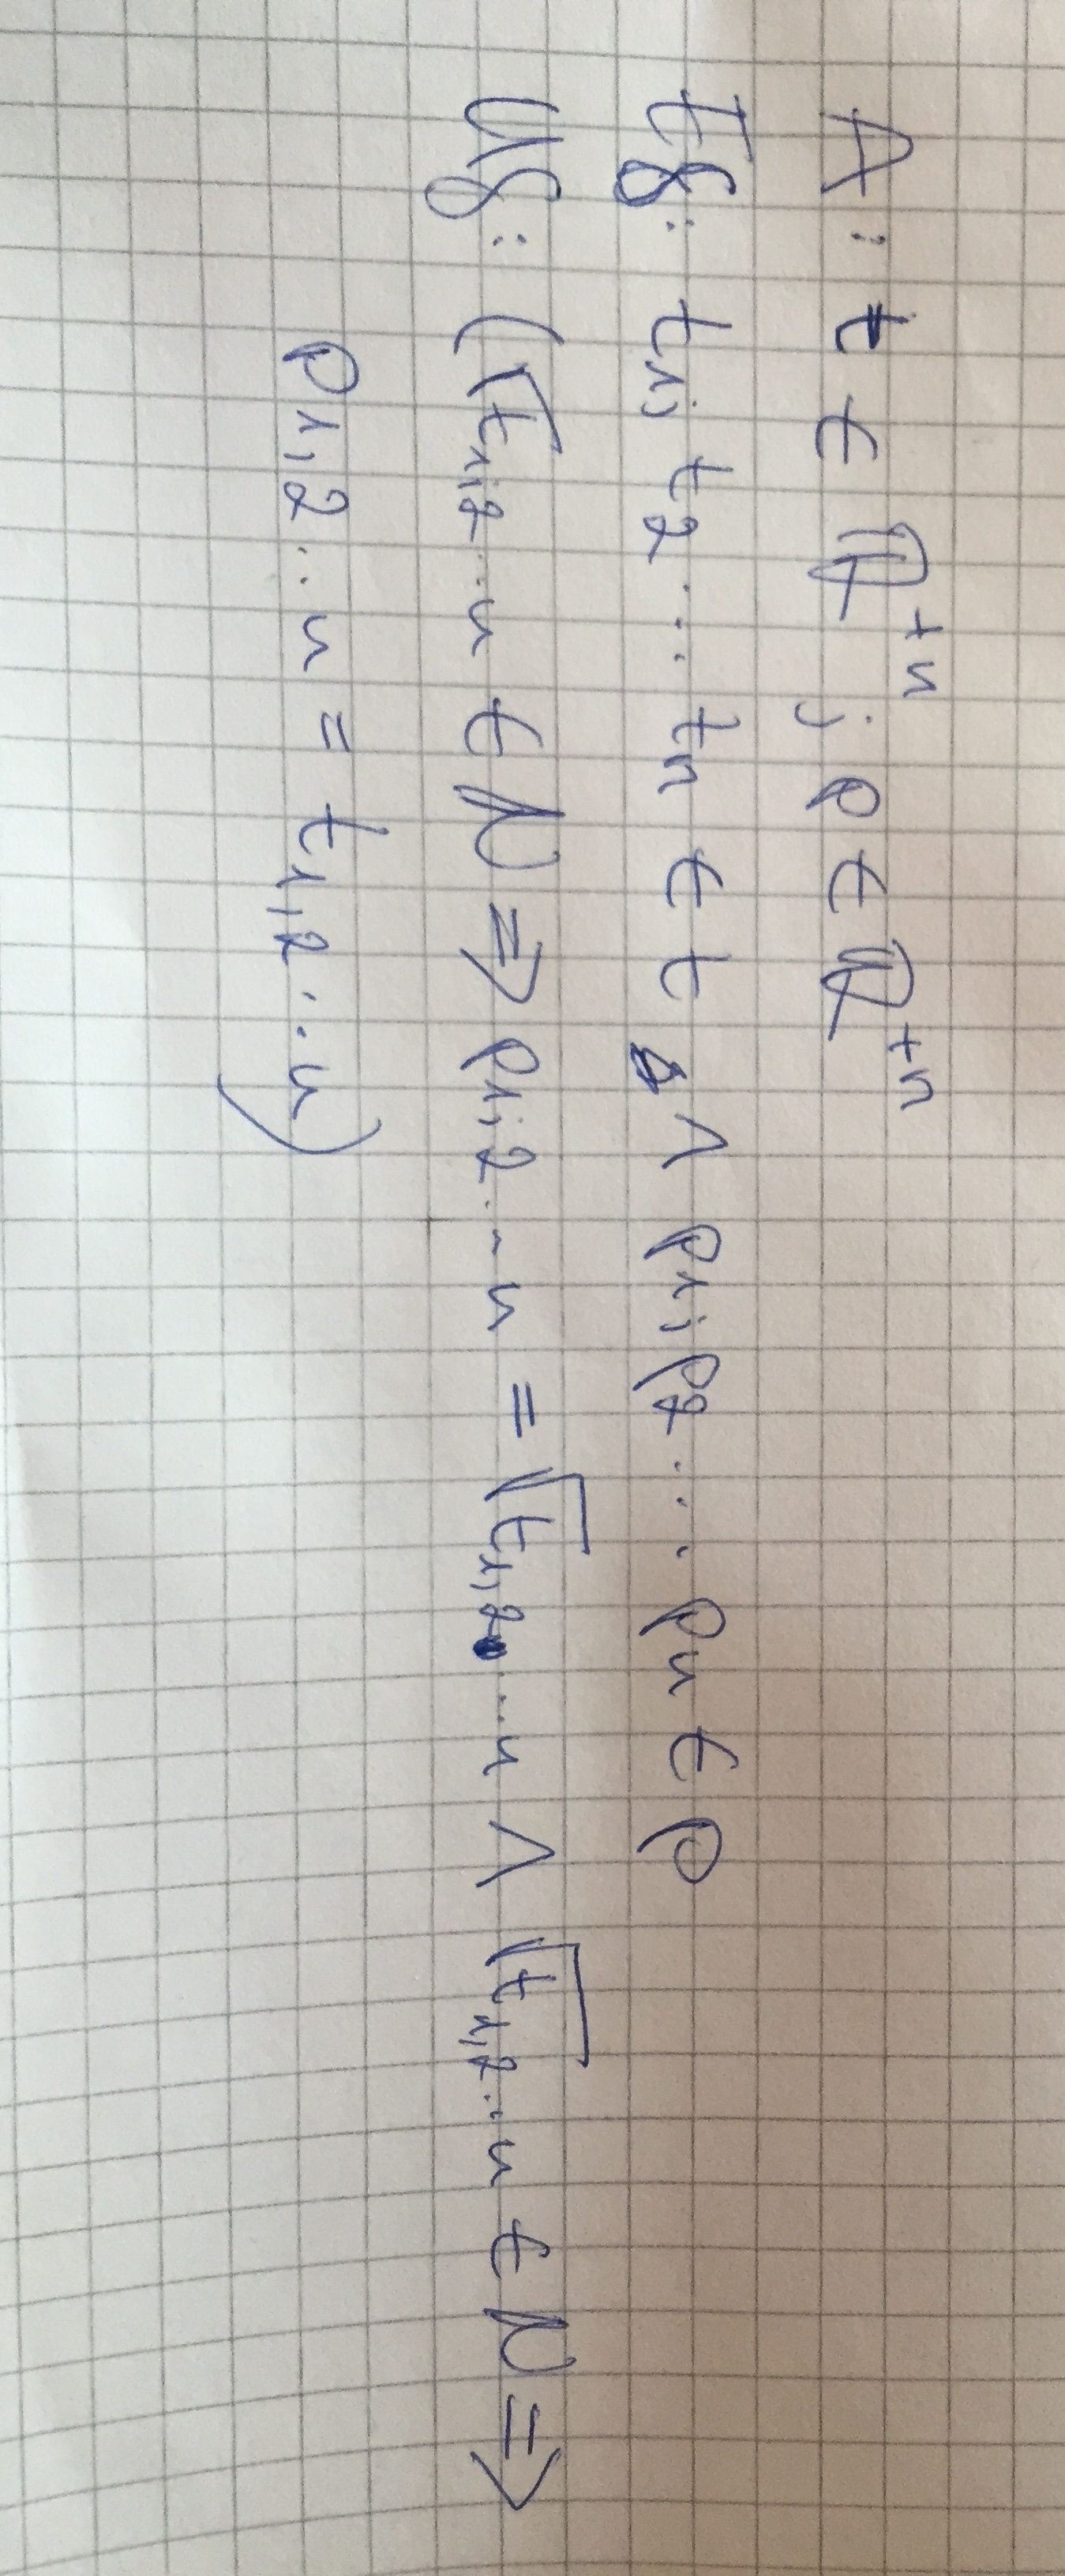 A: t ∈ ℝ⁺ⁿ ; p ∈ ℝ⁺ⁿ
Eg: t₁; t₂ ... tₙ ∈ t ∧ p₁; p₂ ... pₙ ∈ p
Ug: (√t₁;₂..n ∈ ℕ ⇒ p₁;₂...n = √t₁,₂...n ∧ √t₁,₂..n ∈ ℕ ⇒
p₁,₂..n = t₁,₂...n)